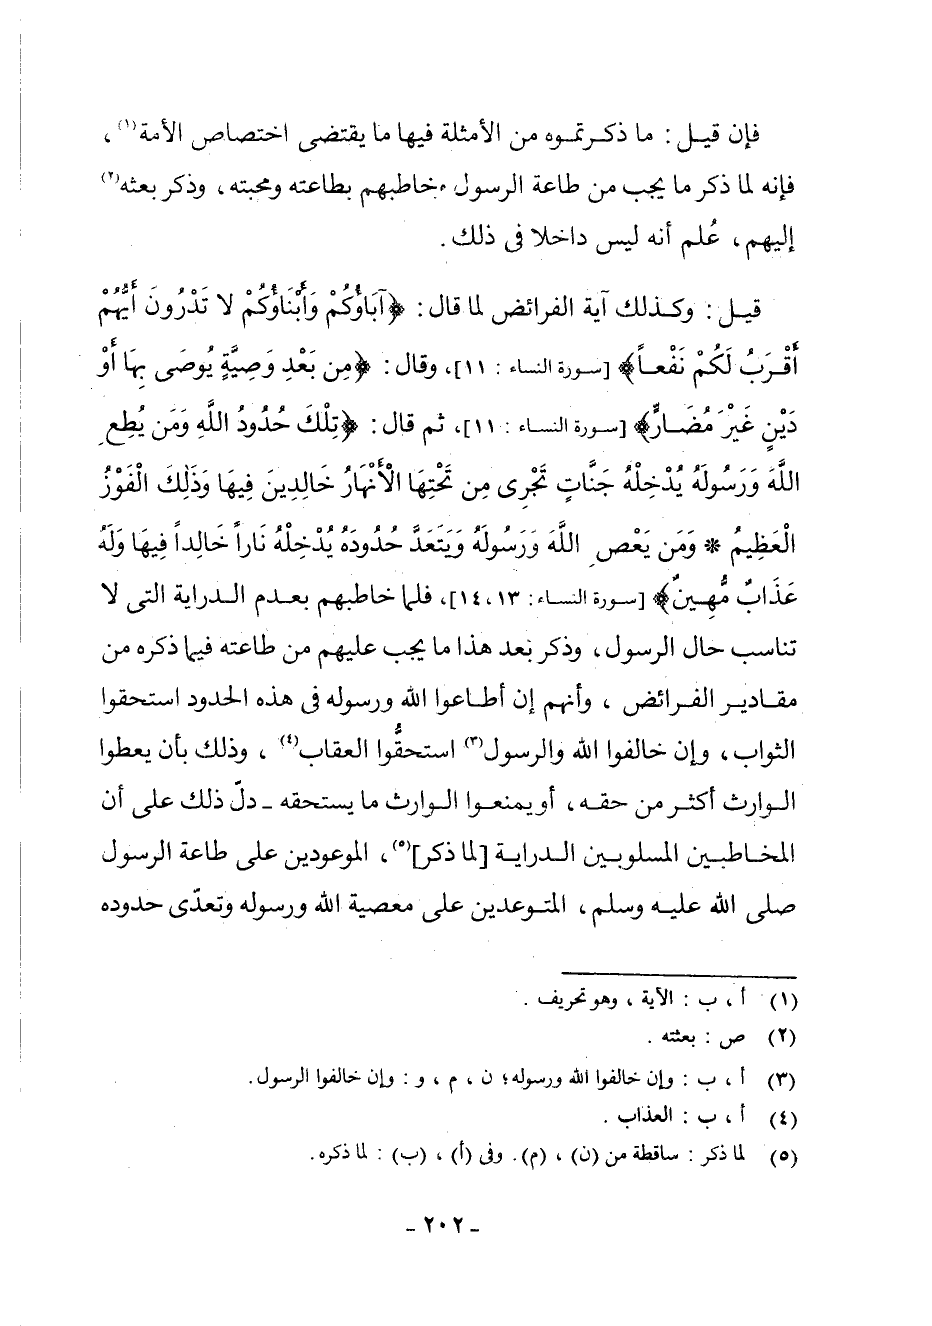 فإن قيل : ما ذكرتموه من الأمثلة فيها ما يقتضى اختصاص الأمة(١) ،
فإنه لما ذكر ما يجب من طاعة الرسول ، خاطبهم بطاعته ومحبته ، وذكر بعثه(٢)
إليهم ، عُلم أنه ليس داخلا فى ذلك .
قيل : وكذلك آية الفرائض لما قال : ﴿آبَاؤُكُمْ وَأَبْنَاؤُكُمْ لا تَدْرُونَ أَيُّهُمْ
أَقْرَبُ لَكُمْ نَفْعاً﴾ [سورة النساء : ١١]، وقال : ﴿مِن بَعْدِ وَصِيَّةٍ يُوصَى بِهَا أَوْ
دَيْنٍ غَيْرَ مُضَارٍّ﴾ [سورة النساء : ١١]، ثم قال : ﴿تِلْكَ حُدُودُ اللَّهِ وَمَن يُطِعِ
اللَّهَ وَرَسُولَهُ يُدْخِلْهُ جَنَّاتٍ تَجْرِى مِن تَحْتِهَا الْأَنْهَارُ خَالِدِينَ فِيهَا وَذَلِكَ الْفَوْزُ
الْعَظِيمُ * وَمَن يَعْصِ اللَّهَ وَرَسُولَهُ وَيَتَعَدَّ حُدُودَهُ يُدْخِلْهُ نَاراً خَالِداً فِيهَا وَلَهُ
عَذَابٌ مُّهِينٌ﴾ [سورة النساء: ١٣، ١٤]، فلما خاطبهم بعدم الدراية التى لا
تناسب حال الرسول ، وذكر بعد هذا ما يجب عليهم من طاعته فيما ذكره من
مقادير الفرائض ، وأنهم إن أطاعوا الله ورسوله فى هذه الحدود استحقوا
الثواب ، وإن خالفوا الله والرسول(٣) استحقُّوا العقاب(٤) ، وذلك بأن يعطوا
الوارث أكثر من حقه ، أو يمنعوا الوارث ما يستحقه ـ دلّ ذلك على أن
المخاطبين المسلوبين الدراية [لما ذكر](٥) ، الموعودين على طاعة الرسول
صلى الله عليه وسلم ، المتوعدين على معصية الله ورسوله وتعدّى حدوده
(١) أ ، ب : الآية ، وهو تحريف .
(٢) ص : بعثته .
(٣) أ ، ب : وإن خالفوا الله ورسوله؛ ن ، م ، و : وإن خالفوا الرسول.
(٤) أ ، ب : العذاب .
(٥) لما ذكر : ساقطة من (ن) ، (م). وفى (أ) ، (ب) : لما ذكره.
ـ ٢٠٢ ـ